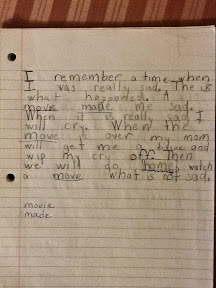 I remember a time when
I was really sad. The is
what happened. A
movie made me sad.
When it is really sad I
will cry. When the
movie is over my mom
will get me a tissue and
wip my cry off. Then
we will do home, watch
a movie what is not sad.
movie
made